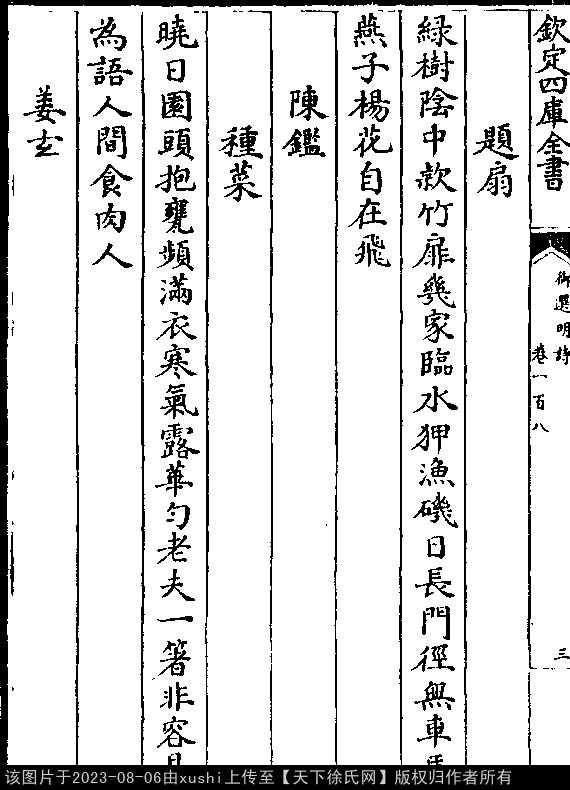 欽定四庫全書
御選明詩
卷一百八
三
題扇
綠樹陰中款竹扉幾家臨水狎漁磯日長門徑無車
燕子楊花自在飛
陳鑑
種菜
曉日園頭抱甕頻滿衣寒氣露華勻老夫一箸非容
為語人間食肉人
姜玄
该图片于2023-08-06由xushi上传至【天下徐氏网】版权归作者所有